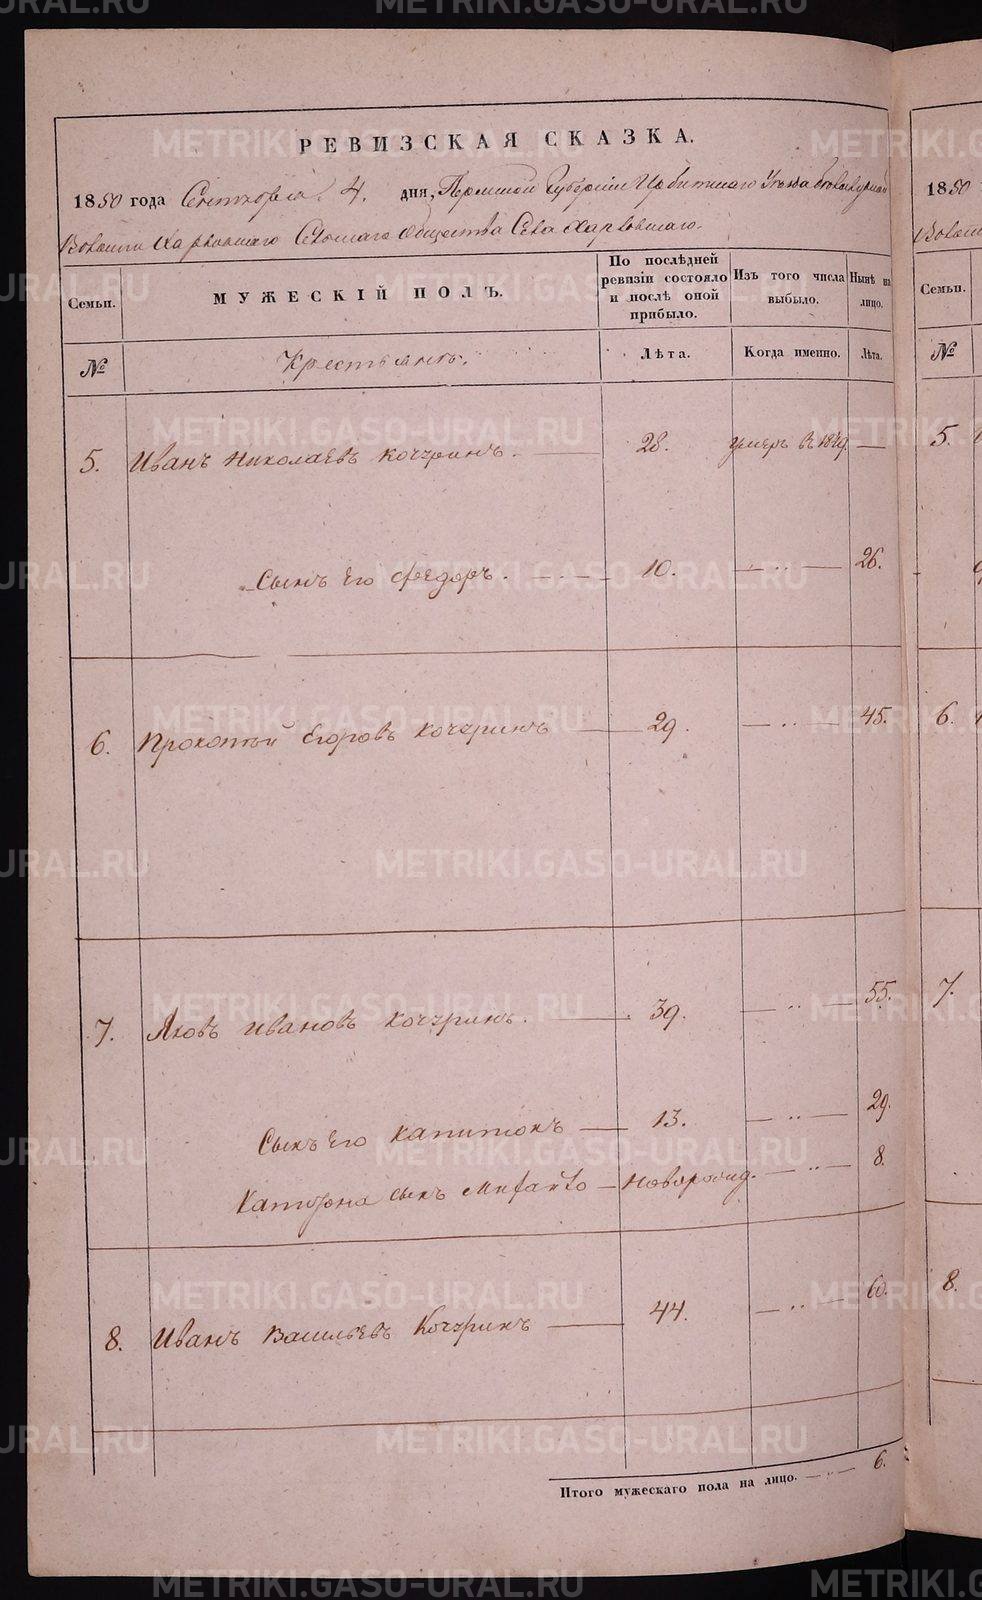 РЕВИЗСКАЯ СКАЗКА.
1850 года Сентября 4. дня, Пермской Губернiи Ирбитскаго Уезда
Волости Харловскаго Сельскаго Общества Села Харловскаго.
Семьи. МУЖЕСКIЙ ПОЛЪ. По послѣдней ревизiи состояло и послѣ оной прибыло. Изъ того числа выбыло. Нынѣ на лицо.
№ Крестьянъ. Лѣта. Когда именно. Лѣта.
5. Иванъ Николаевъ Кочуринъ. — 28. умеръ в 1849. —
Сынъ Его Федоръ. — 10. — " — 26.
6. Прокопий Егоровъ Кочуринъ — 29. — " — 45.
7. Яковъ Ивановъ Кочуринъ. — 39. — " — 55.
Сынъ Его Капитонъ — 13. — " — 29.
Капитона сынъ Михайло — Новорожд. — " — 8.
8. Иванъ Васильевъ Кочуринъ — 44. — " — 60.
Итого мужескаго пола на лицо. — " — 6.
1850
Волости
Семьи.
№
5.
6.
7.
8.
METRIKI.GASO-URAL.RU